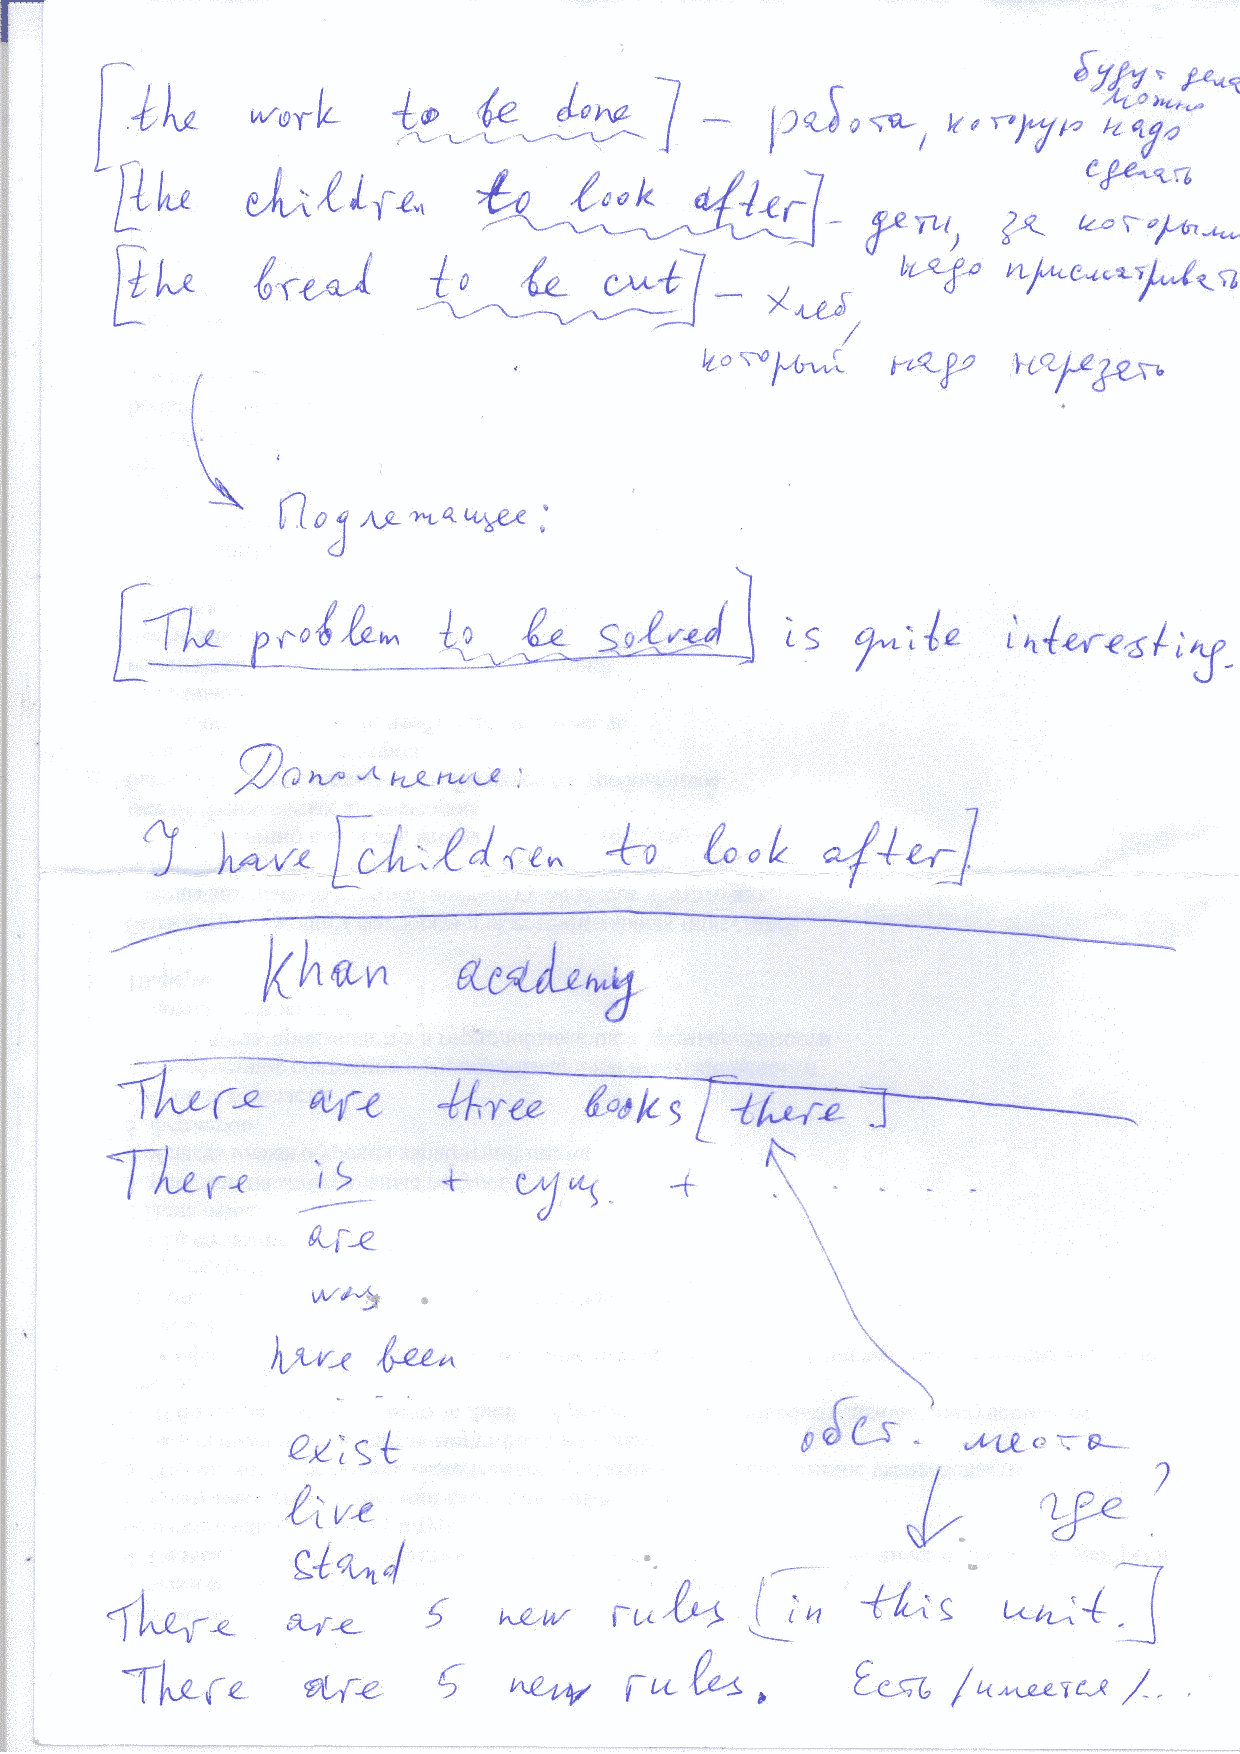 будут дела
можно
[the work to be done] – работа, которую надо
сделать
[the children to look after] – дети, за которыми
надо присматривать
[the bread to be cut] – хлеб,
который надо нарезать
Подлежащее:
[The problem to be solved] is quite interesting.
Дополнение:
I have [children to look after]
Khan academy
There are three books [there.]
There is + сущ. + . . . . .
are
was
have been
exist
live
stand
обст. места
где?
There are 5 new rules [in this unit.]
There are 5 new rules. Есть /имеется /...